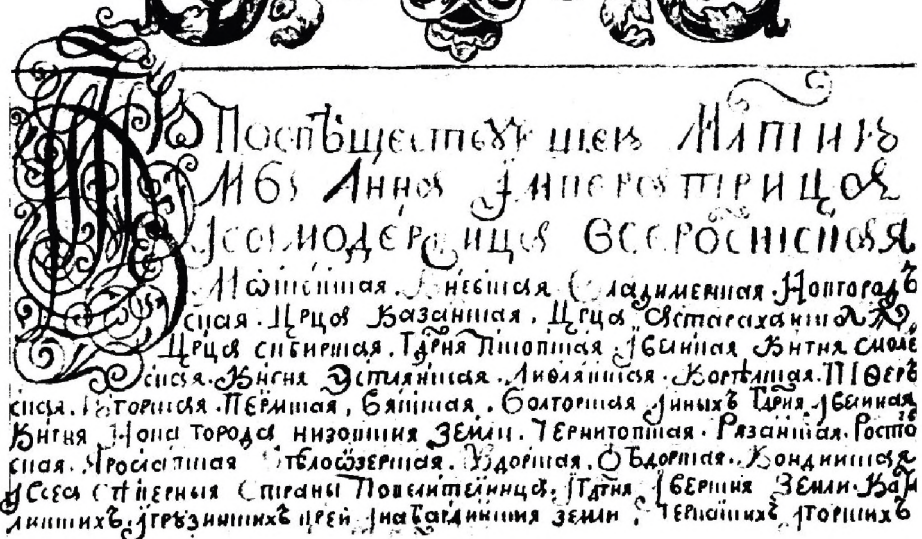 Поспѣшествующею млтию
мы Анна Императрица
и самодержица всеросиская
Московская . Киевская Владимерская . Новгородъ
ская . Црца Казанская . Црца Астараханская
Црца сибирская . Гдрня Псковская и великая Княгня смоле
ская . Княгня Эстлянская . Лифлянская . Корѣлская . Твѣръ
ская . Югорская . Пермская , Вятская . Болгорская и иныхъ Гдрня . и великая
Княгня Нова города низовския земли . Чернигопская . Рязанская . Росто
ская . Ярославская Бѣлоѡзерская . Удорская . Обдорская . Кондинская
и всеа сѣверныя страны Повелителница . и Гдрня Иверския Земли . Ка
линскихъ . и грузинскихъ црей и кабардинския земли . Черкаскихъ и горскихъ